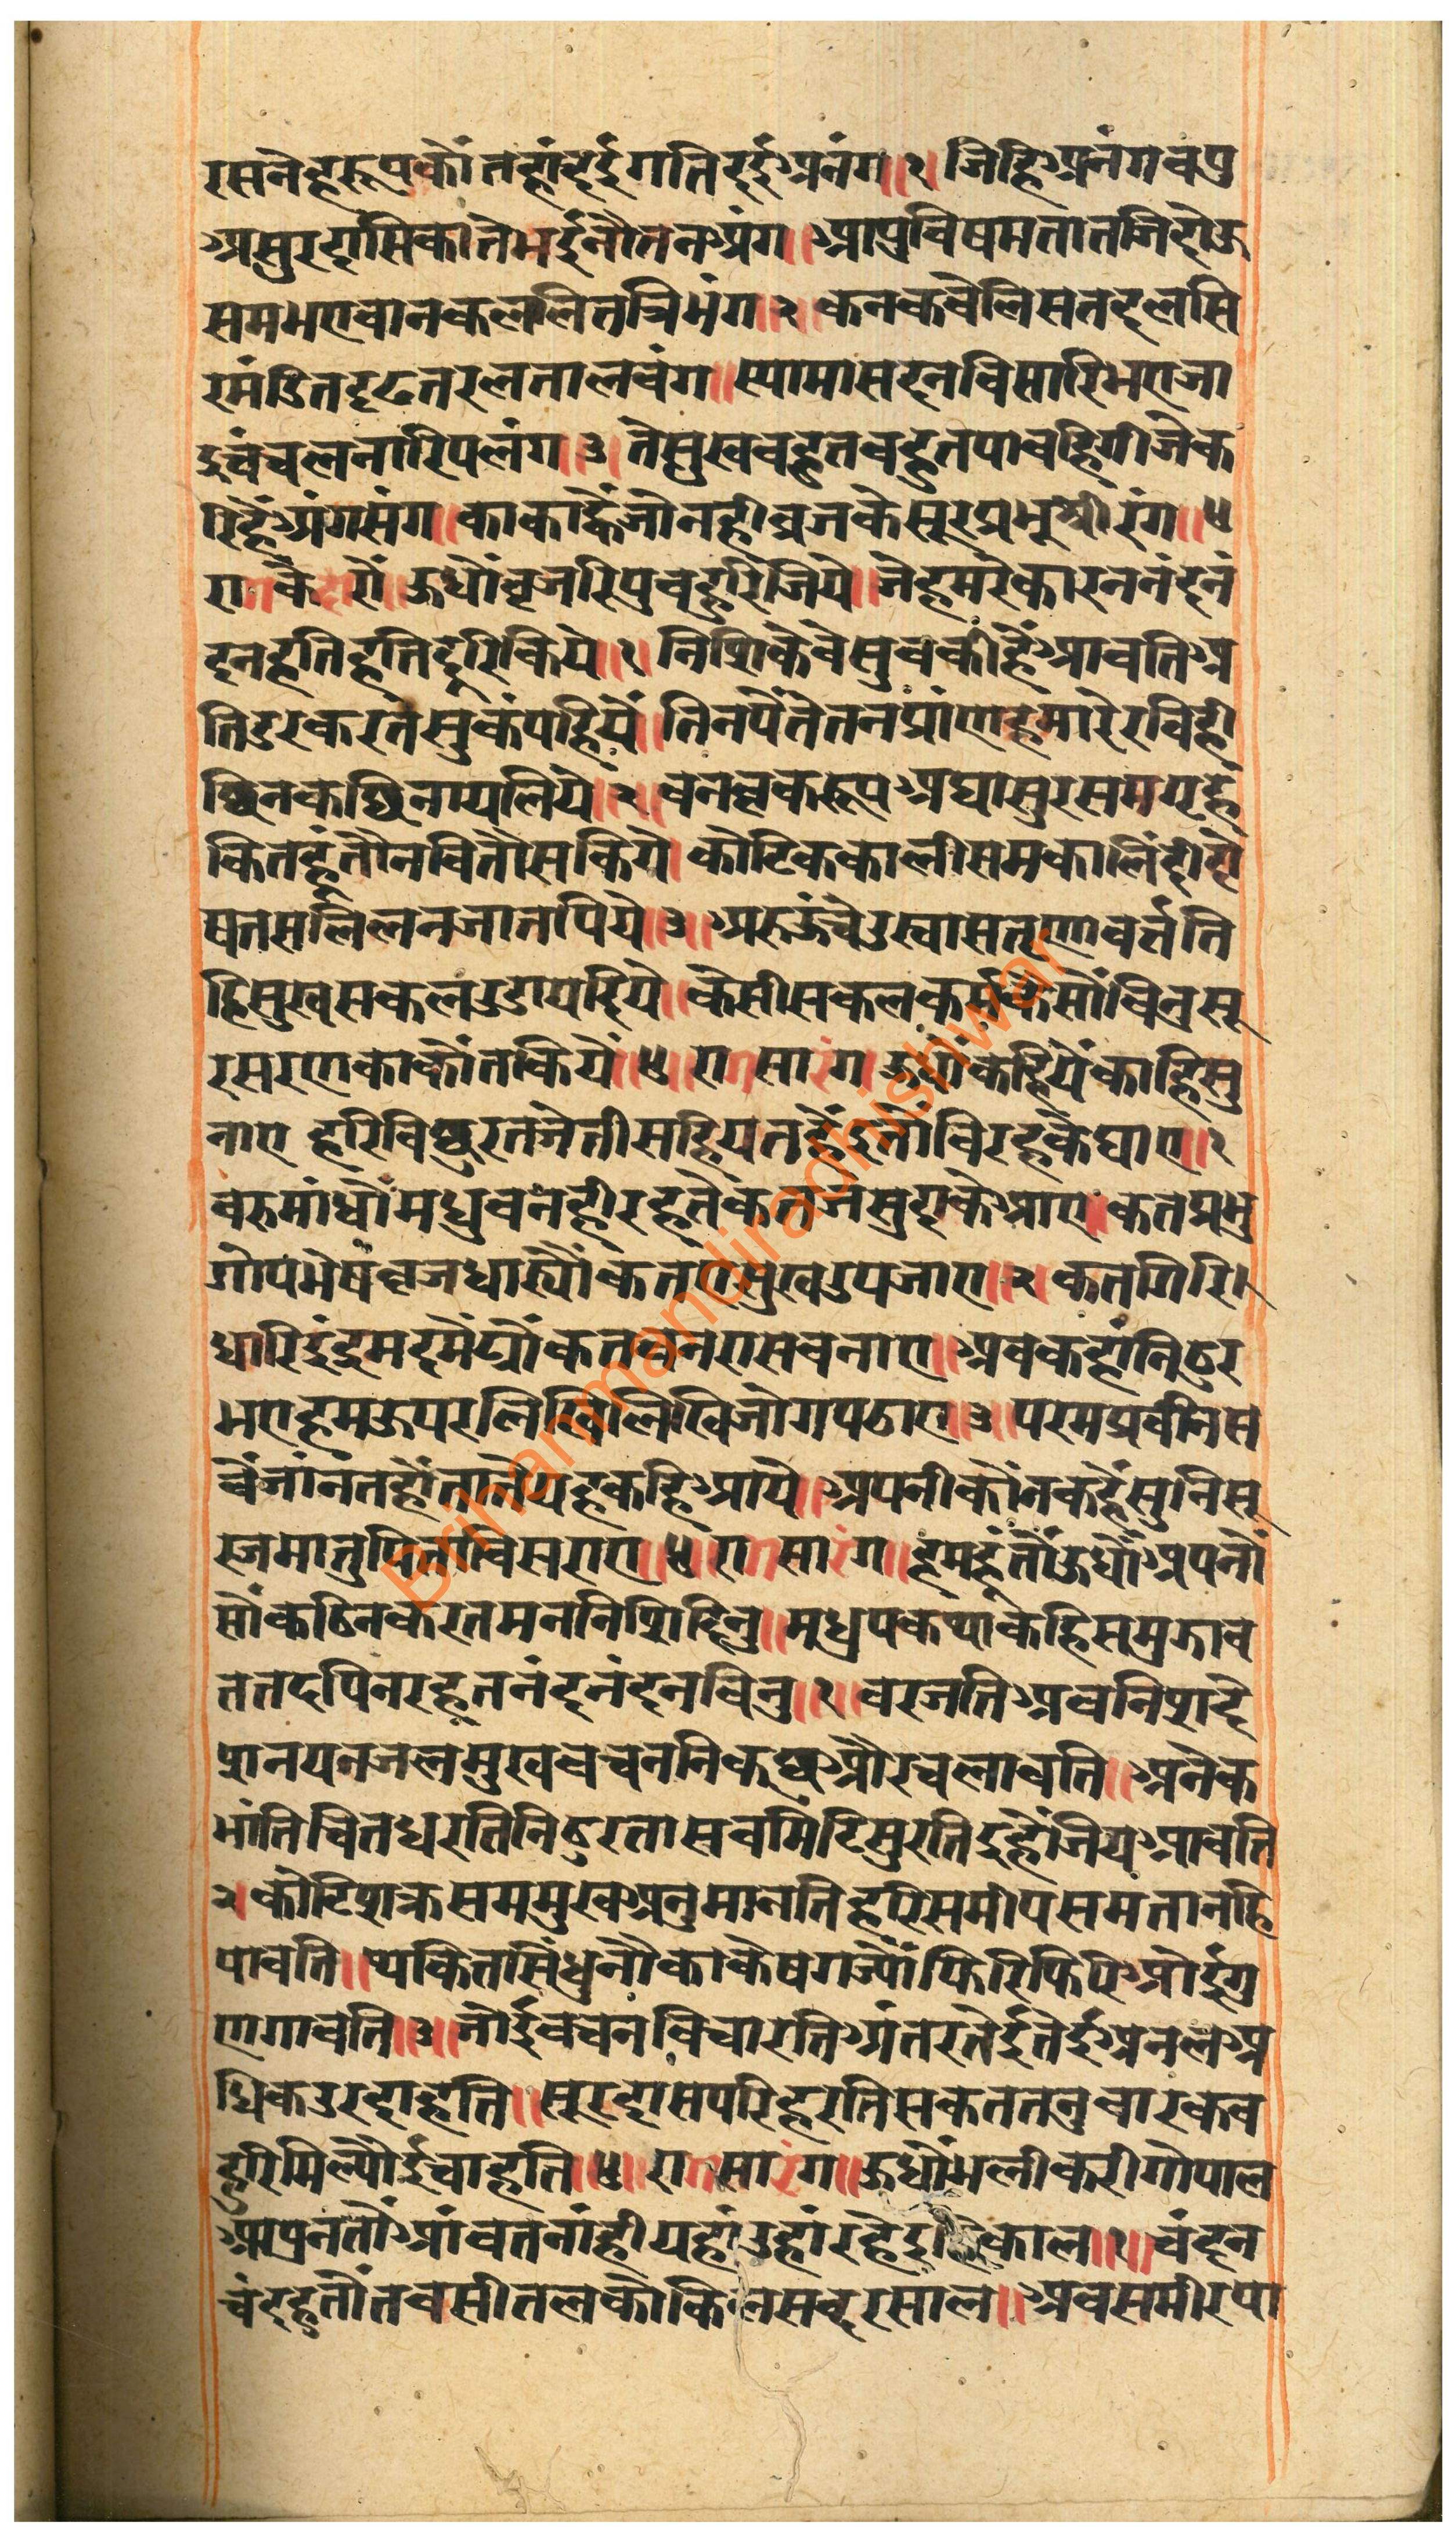 रसनेहरूपकौंतहांदईगतिदईअनंग॥१॥जिहिअनंगवपु
असुरदासिकोतेमईनौतनअंग॥आपुविषमतातजिदोऊ
समभएवानकललितत्रिभंग॥२॥कनकवेलिसतदलसि
रमंडितदृढतरलतालवंग॥स्यामासदनविसारिभएजा
इचंचलनारिपलंग॥३॥तेसुखवहुतवहुतपावहिगीजेक
रिहैंअंगसंग॥काकाह्वैजोनहीव्रजकेसूरप्रभूश्रीरंग॥४॥
रागकेदारौ॥ऊधौंवृजरिपुवहुरिजिये॥जेहमरेकारननंदनं
दनहतिहतिदूरिकिये॥१॥निशिकेवेसुवकीह्वैआवतिअ
तिडरकरतसुकंपहियें॥तिनपैंतेतनप्रांणहमारेरविही
छिनकछिनायलिये॥२॥वनवृकरूपअघासुरसमग्रहे
कितहूंतौनवितौसकिये॥कोटिककालीसमकालिंदीदो
षतसलिलनजातपिये॥३॥अरुऊंचेउखासतृणावर्त्तति
हिसुखसकलउडायदिये॥केसीसकलकर्मकेसौंविनुसू
रसरणकाकौंतकियें॥४॥रागसारंग॥ऊधौंकहियेंकाहिसु
नाए हरिविछुरतजेतीसहियतहैंइतौविरहकेघाए॥१
वरुमांधौंमधुवनहीरहतेकतजसुदाकेआए॥कतप्रभु
गोपभेषवृजधार्योंकतएसुखउपजाए॥२॥कतगिरि
धारिइंद्रमदमेंट्योंकतवनराससेवनाए॥अवकहांनिठुर
भएहमऊपरलिखिलिखिजोगपठाए॥३॥परमप्रवीनस
वैंजांनंतहौंतातेंयहकहिआये॥अपनीकौंनकहैंसुनिसू
रजमातुपिताविसराए॥४॥रागसारंग॥हमहूंतौंऊधौंअपनों
सौंकठिनकरतमननिशिदिनु॥मुधुपकथाकहिसमुझाव
ततदपिनरहतनंदनंदनविनु॥१॥वरजतिश्रवनिशदे
शनयनजलमुखवचननिकछुऔरचलावति॥अनेक
भांतिचितधरतिनिठुरतासवमिटिसुरतिइहौंजियआवति
२॥कोटिशक्रसमसुखअनुमानतिहरिसमीपसमतानहि
पावति॥थकितसिंधुनौकाकेषगज्यौंफिरिफिरिओईगु
णगावति॥३॥जोईवचनविचारतिअंतरतेईतेईअनलअ
धिकउरदाहति॥सूरदासपरिहरतिसकततनुवारकव
हुरिमिल्यौईचाहति॥४॥रागसारंग॥ऊधौंभलीकरीगोपाल
आपुनतौंआंवतनांहीयहांउहांरहेइहिंकाल॥१॥चंदन
चंदहुतौंतवसीतलकोकिलसवदरसाल॥अवसमीरपा